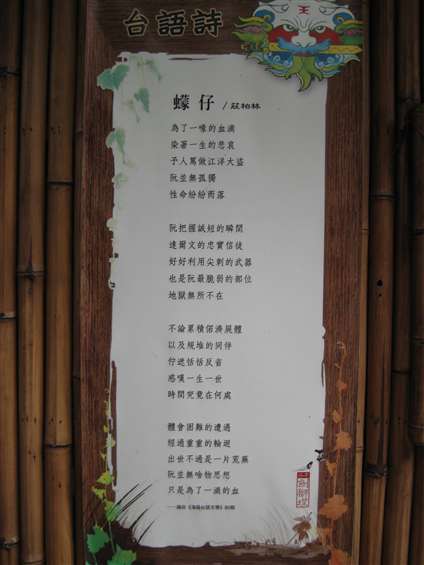 台語詩
王
蠓仔 / 莊柏林
為了一喙的血滴
染著一生的悲哀
予人罵做江洋大盜
阮並無孤獨
性命紛紛而落
阮把握誠短的瞬間
達爾文的忠實信徒
好好利用尖刺的武器
也是阮最脆弱的部位
地獄無所不在
不論累積偌濟屍體
以及規堆的同伴
佇遮恬恬反省
感嘆一生一世
時間究竟在何處
體會困難的遭遇
經過重重的輪迴
出世不過是一片荒蕪
阮並無啥物思想
只是為了一滴的血